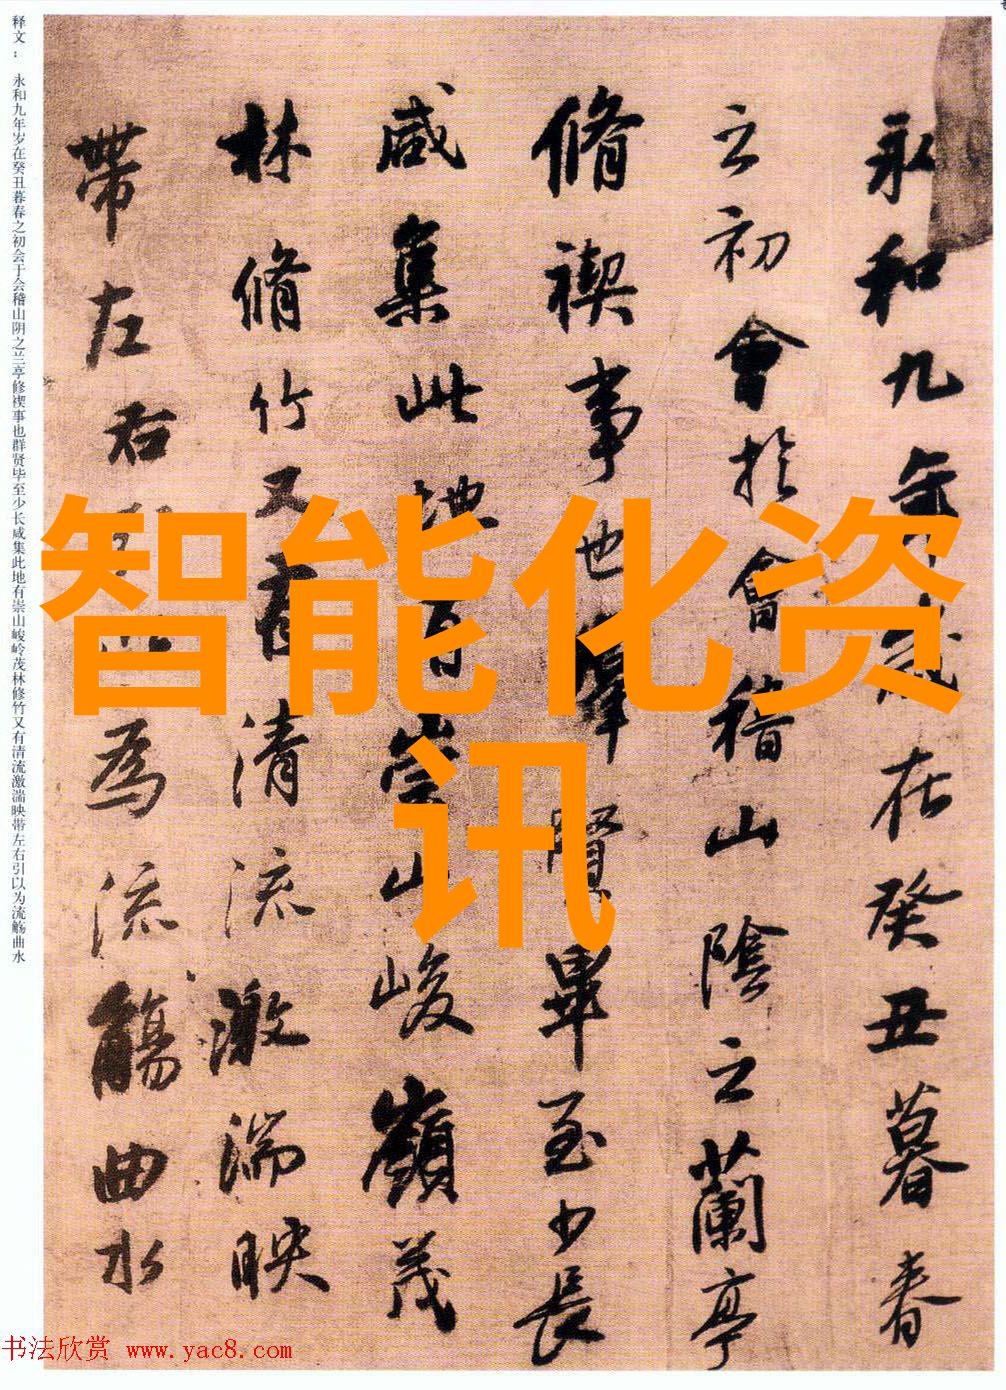 永和九年歲在癸丑暮春
之初會於會稽山陰之蘭亭
脩禊事也羣賢畢至少長
咸集此地有崇山峻嶺茂
林脩竹又有清流激湍映
帶左右引以為流觴曲水
释文： 永和九年岁在癸丑暮春之初会于会稽山阴之兰亭修禊事也群贤毕至少长咸集此地有崇山峻岭茂林修竹又有清流激湍映带左右引以为流觞曲水
智能化资
讯
书法欣赏 www.yac8.com